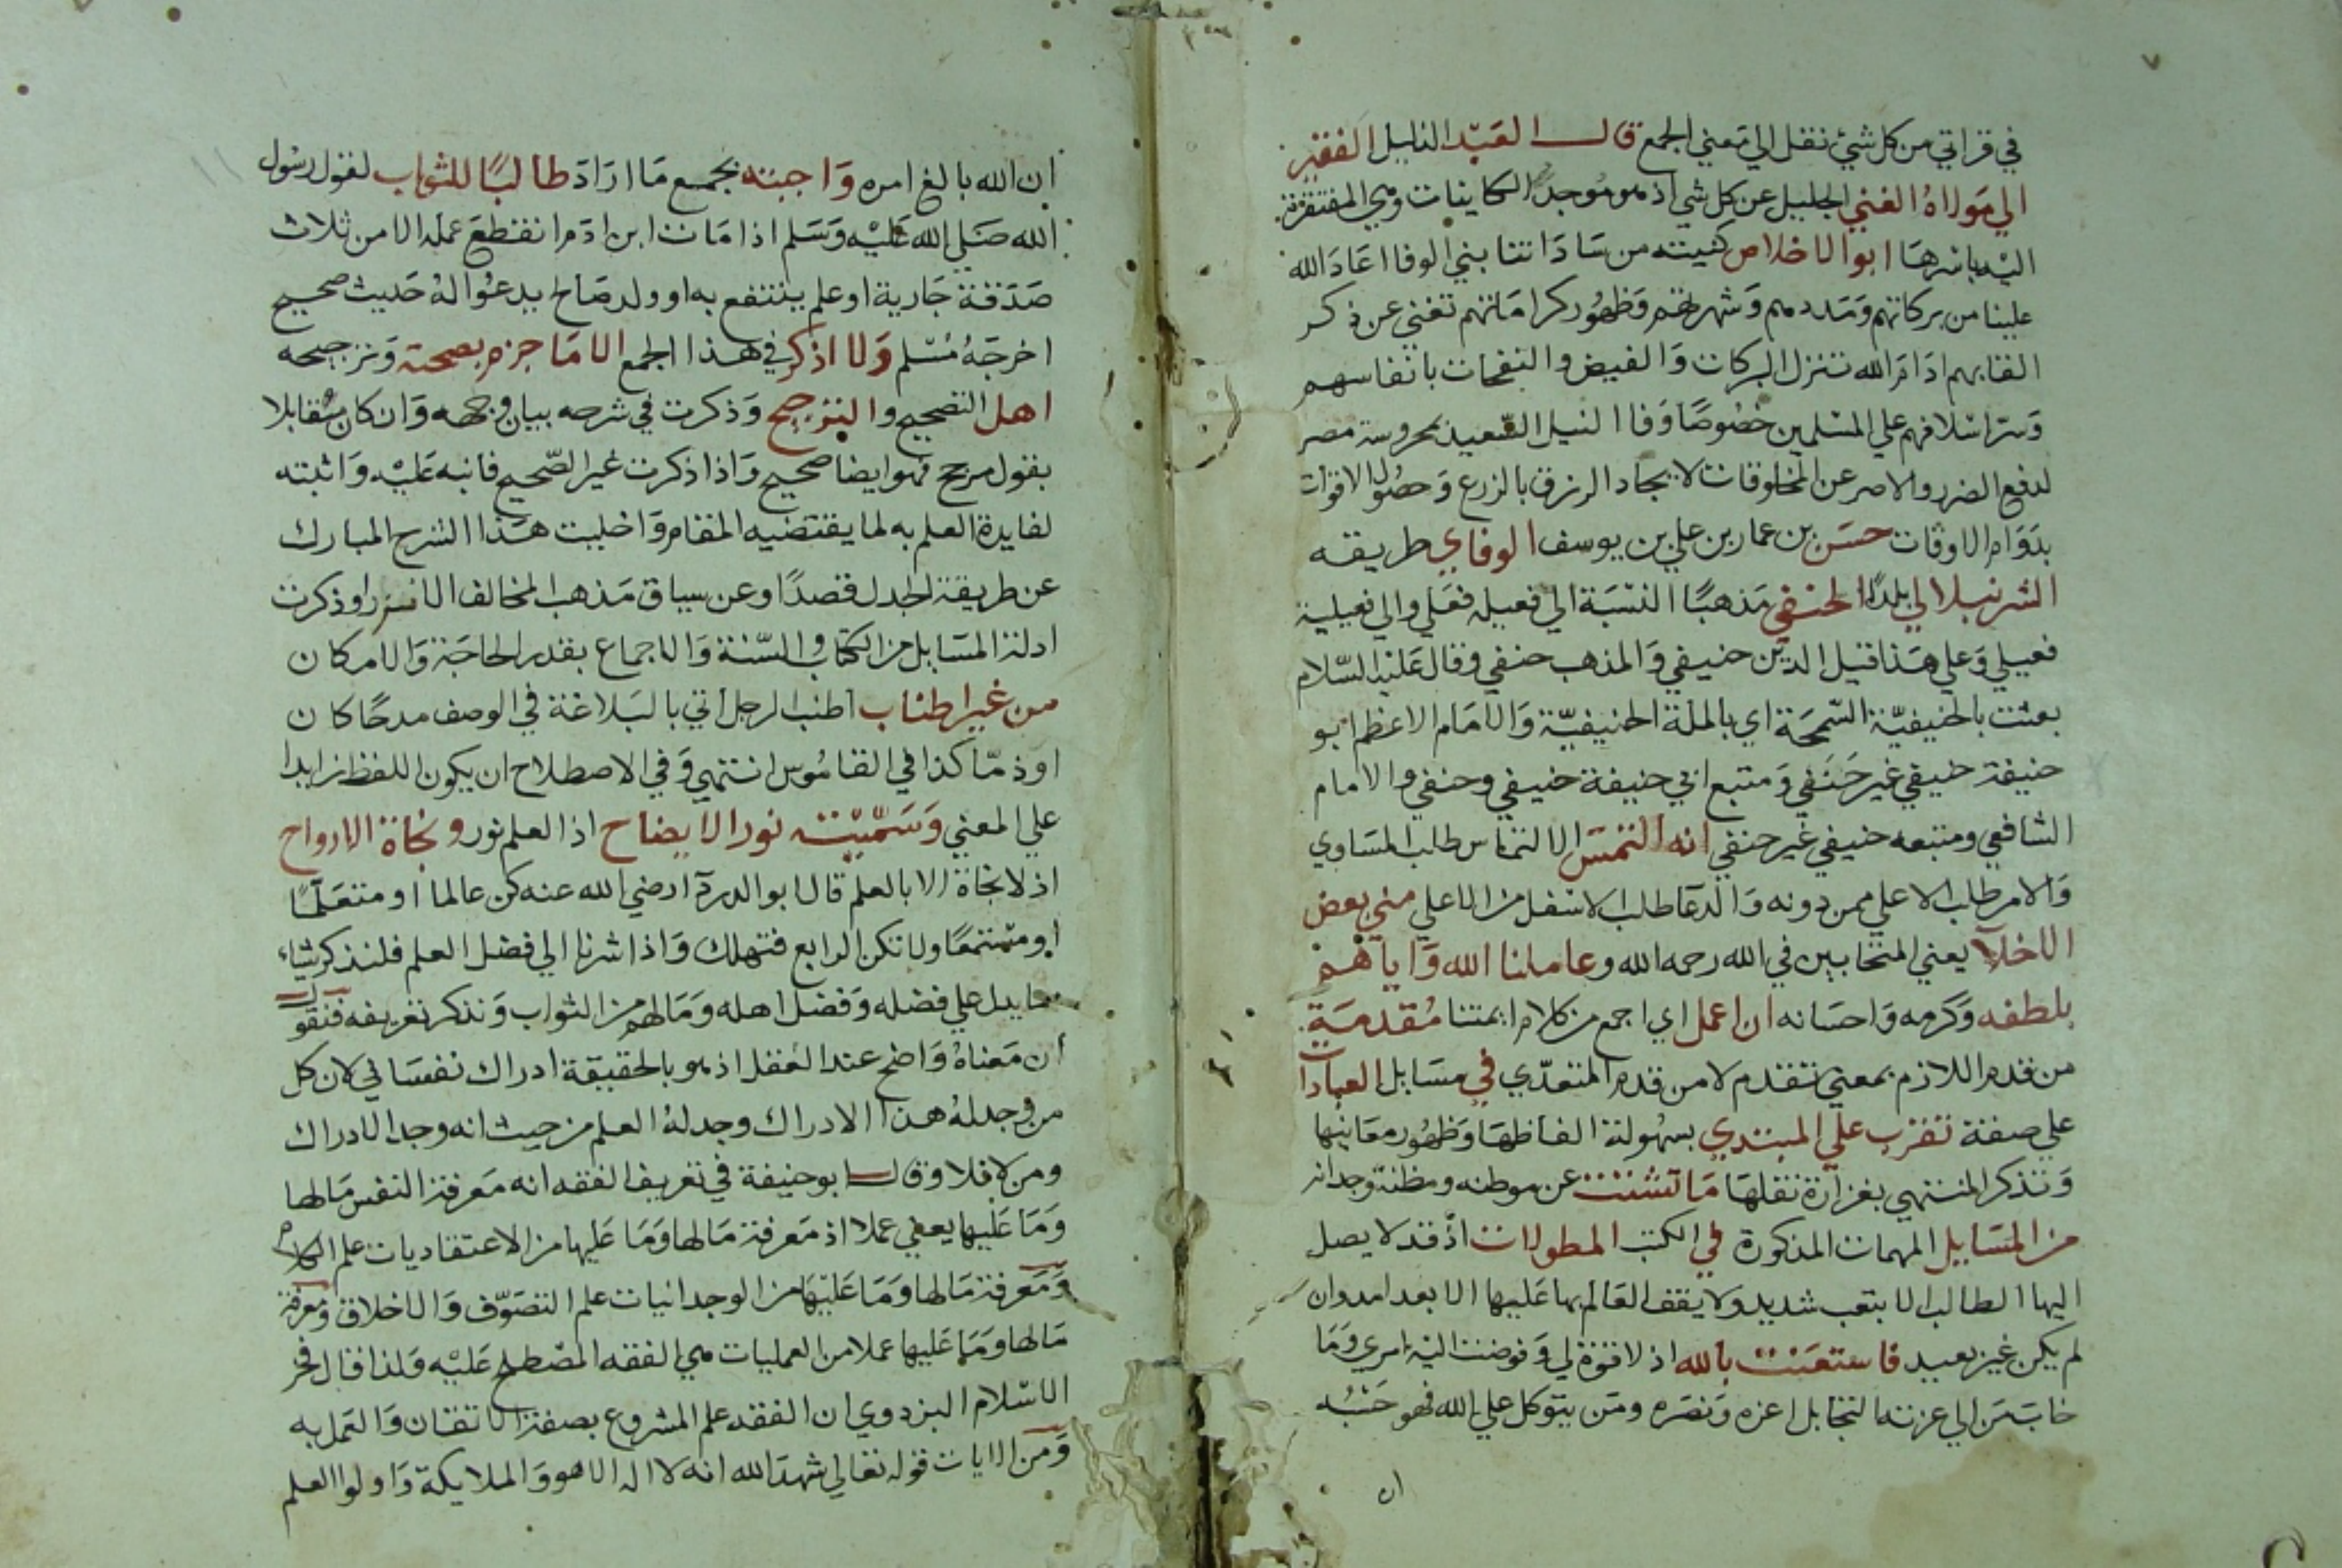 في قراتي من كل شيء نقل الي معني الجمع قال العبد الذليل الفقير
الي مولاه الغني الجليل عن كل شي اذ هو موجد الكاينات وهي المفتقرة
اليه باسرها ابو الاخلاص كنيته من ساداتنا بني الوفا اعاد الله
علينا من بركاتهم ومددهم وشهرتهم وظهور كراماتهم تغني عن ذكر
القابهم ادام الله تنزل البركات والفيض والنفحات بانفاسهم
وسر اسلافهم علي المسلمين خصوصا وفا النيل السعيد بمحروسة مصر
لدفع الضرر والاصر عن المخلوقات لايجاد الرزق بالزرع وحصول الاقوات
بدوام الاوقات حسن بن عمار بن علي بن يوسف الوفاي طريقه
الشرنبلالي بلدا الحنفي مذهبا النسبة الي فعيله فعلي والي فعيلية
فعيلي وعلي هذا قيل الدين حنيفي والمذهب حنفي وقال عليه السلام
بعثت بالحنيفيّة السّمحة اي بالملة الحنيفيّة والامام الاعظم ابو
حنيفة حنيفي غير حنفي ومتبع ابي حنيفة حنيفي وحنفي والامام
الشافعي ومتبعه حنيفي غير حنفي انه التمس الالتماس طلب المساوي
والامر طلب الاعلي ممن دونه والدعا طلب الاسفل من الاعلي مني بعض
الاخلآ يعني المتحابين في الله رحمه الله وعاملنا الله واياهم
بلطفه وكرمه واحسانه ان اعمل اي اجمع من كلام ايمتنا مقدمة
من قدم اللازم بمعني تقدم لا من قدم المتعدّي في مسايل العبادات
علي صفة تقرب علي المبتدي بسهولة الفاظها وظهور معانيها
وتذكر المنتهي بغزارة نقلها ما تشتت عن موطنه ومظنة وجدانه
من المسايل المهمات المذكورة في الكتب المطولات اذ قد لا يصل
اليها الطالب الا بتعب شديد ولا يقف العالم بها عليها الا بعد امد وان
لم يكن غير بعيد فاستعنت بالله اذ لا قوة لي وفوضت اليه امري وما
خاب من الي عزته التجا بل اعزه ونصره ومن يتوكل علي الله فهو حسبه
ان
ان الله بالغ امره واجبته بجمع ما اراد طالبًا للثواب لقول رسول
الله صلي الله عليه وسلم اذا مات ابن ادم انقطع عمله الا من ثلاث
صدقة جارية او علم ينتفع به او ولد صالح يدعو اله حديث صحيح
اخرجه مسلم ولا اذكر في هذا الجمع الا ما جزم بصحته وترجيحه
اهل التصحيح والترجيح وذكرت في شرحه بيان وجهه وان كان مقابلا
بقول مرجح فهو ايضا صحيح واذا ذكرت غير الصّحيح فانبه عليه واثبته
لفايدة العلم به لما يقتضيه المقام واخليت هذا الشرح المبارك
عن طريقة الجدل قصدًا وعن سياق مذهب المخالف الا نزرا وذكرت
ادلة المسايل من الكتاب والسّنة والاجماع بقدر الحاجة والامكان
من غير اطناب اطنب الرجل اتي بالبلاغة في الوصف مدحًا كان
او ذمّا كذا في القاموس انتهي وفي الاصطلاح ان يكون اللفظ زايدا
علي المعني وسمّيته نور الايضاح اذ العلم نور ونجاة الارواح
اذ لا نجاة الا بالعلم قال ابو الدردآ رضي الله عنه كن عالما او متعلمًا
او مستمعًا ولا تكن الرابع فتهلك واذا اشرنا الي فضل العلم فلنذكر شياء
مما يدل علي فضله وفضل اهله وما لهم من الثواب ونذكر تعريفه فنقول
ان معناه واضح عند العقل اذ هو بالحقيقة ادراك نفساني لان كل
من وجد له هذا الادراك وجد له العلم من حيث انه وجد الادراك
ومن لا فلا وقال ابو حنيفة في تعريف الفقه انه معرفة النفس ما لها
وما عليها يعني عملا اذ معرفة ما لها وما عليها من الاعتقاديات علم الكلام
ومعرفة ما لها وما عليها من الوجدانيات علم التصوّف والاخلاق ومعرفة
ما لها وما عليها عملا من العمليات هي الفقه المصطلح عليه ولذا قال فخر
الاسلام البزدوي ان الفقه علم المشروع بصفة الاتقان والعمل به
ومن الايات قوله تعالي شهد الله انه لا اله الا هو والملايكة واولوا العلم